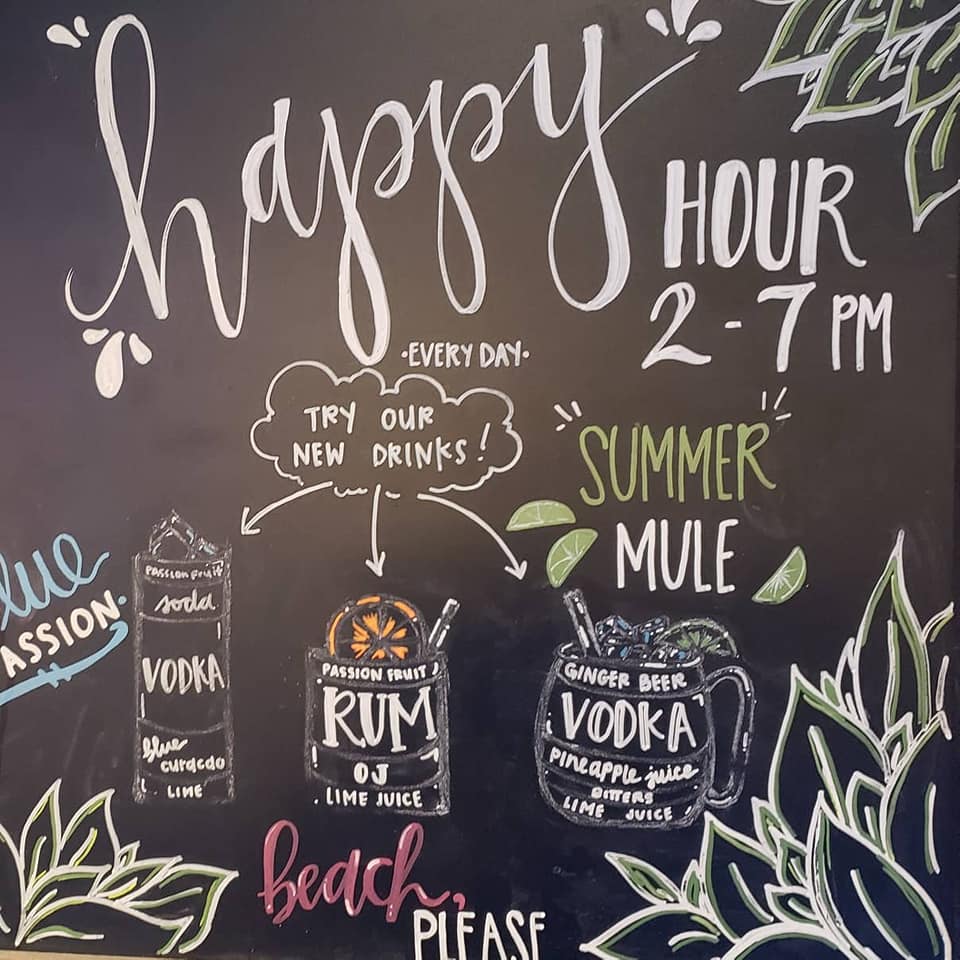 happy
HOUR
2-7 PM
·EVERY DAY·
TRY OUR
NEW DRINKS!
SUMMER
MULE
blue
PASSION.
PASSION FRUIT
soda
VODKA
blue
curacao
LIME
PASSION FRUIT
RUM
OJ
LIME JUICE
GINGER BEER
VODKA
Pineapple juice
BITTERS
LIME JUICE
beach,
PLEASE